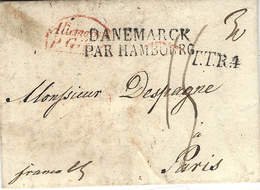 DANEMARCK
PAR HAMBOURG
T.T.R.4
Monsieur Despagne
à
Paris
franco